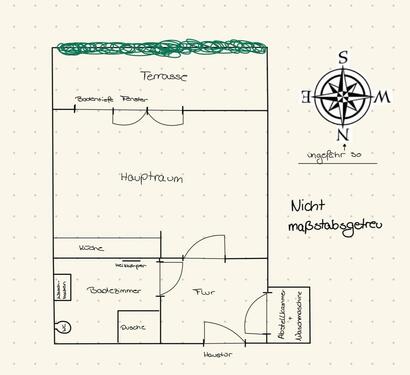 Terrasse
Bodentiefe Fenster
Hauptraum
Küche
Heizkörper
Badezimmer
Waschbecken
WC
Dusche
Flur
Haustür
Abstellkammer
+
Waschmaschine
S
E
W
N
ungefähr so
Nicht
maßstabsgetreu